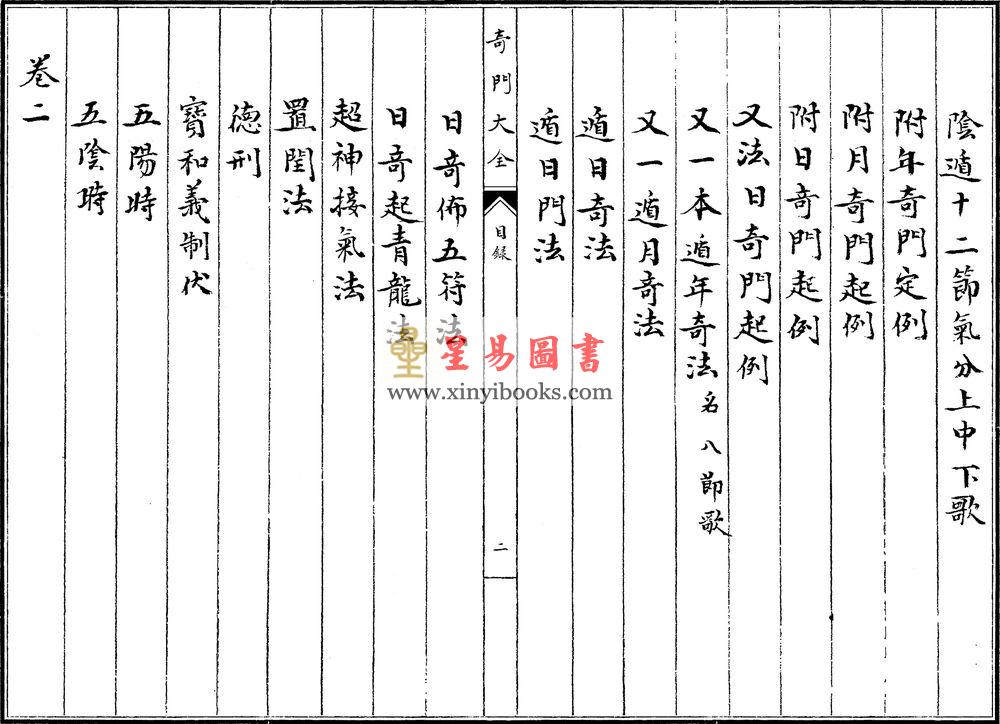 陰遁十二節氣分上中下歌
附年奇門定例
附月奇門起例
附日奇門起例
又法日奇門起例
又一本遁年奇法名八節歌
又一遁月奇法
遁日奇法
遁日門法
奇門大全
目録
二
日奇佈五符法
日奇起青龍法
超神接氣法
置閏法
德刑
寳和義制伏
五陽時
五陰時
卷二
星易圖書
www.xinyibooks.com